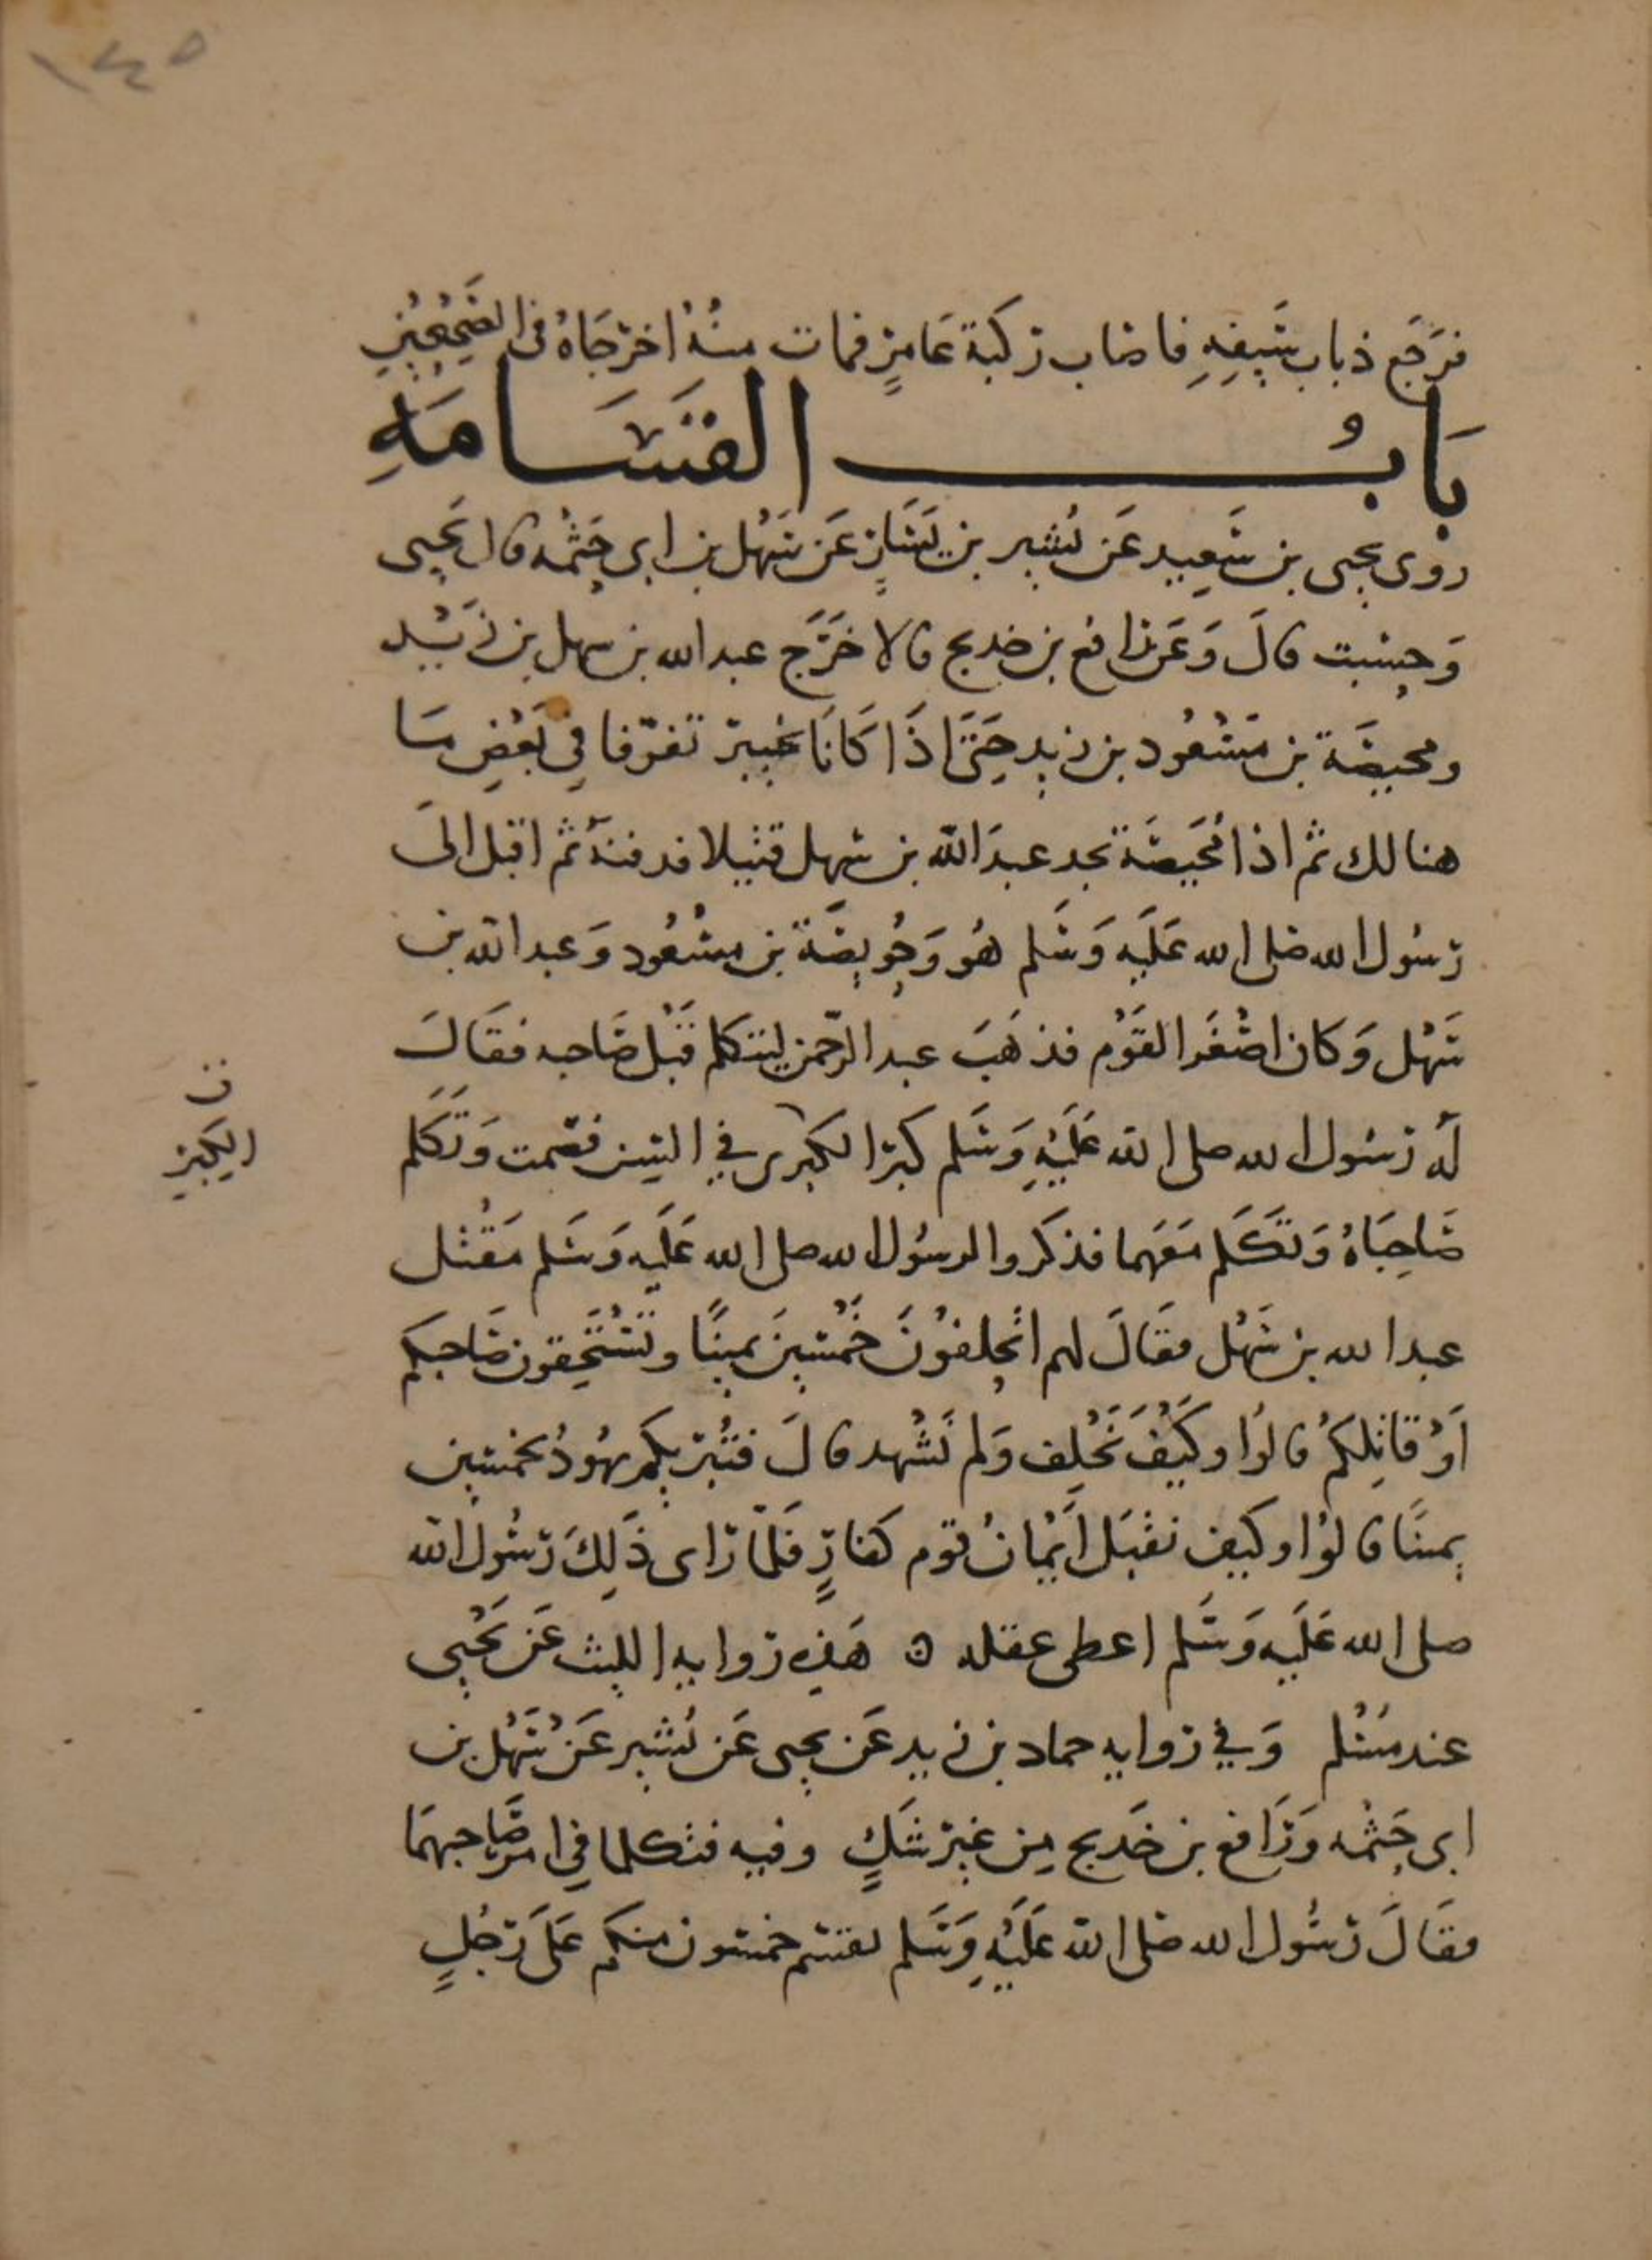 ١٤٥
فرَجَع ذباب سَيفِهِ فاصاب ركبَة عَامرٍ فمات منهُ اخرجَاهُ في الصَحِيحَينِ
بَابُ القَسَامَةِ
روى يحيى بن سَعِيد عَن بُشَير بن يَسَارٍ عَن سَهْل بن ابى حَثْمه قال يَحيى
وَحسِبت قالَ وَعَن رافع بن خديج قالا خَرَج عبد الله بن سهل بن زَيْد
ومحيصَة بن مَسْعُود بن زيد حَتىَ اذَا كَانَا بخيبر تفرّقا في بَعْضِ مَا
هنالك ثم اذا مُحَيصَة يجد عبدَ الله بن سهل قتيلا فدفنهُ ثم اقبل الىَ
رسُول الله صلى الله عَلَيه وَسَلم هُو وَحُويصَة بن مسْعُود وَعبد الله بن
سَهْل وَكان اصْغَر القَوْم فذهَبَ عبد الرّحمن ليتكلم قَبْل صَاحبه فقَالَ
لَهُ رَسُول الله صلى الله عَلَيْهِ وَسَلم كبر الكبرى في السِن فصَمت وَتَكَلم
ن
الكبر
صَاحِبَاهُ وَتَكَلم مَعَهما فذكَروا لرسُول الله صلى الله عَلَيه وَسَلم مَقْتل
عبد الله بن سَهْل فقَالَ لهم اتحلفوْنَ خَمْسِينَ يمينًا وتَسْتَحِقون صَاحبكم
اَوْ قاتِلكمُ قالوُا وكَيْفَ نَحْلِف وَلم نَشْهد قالَ فتُبْريكم يهُودُ بخمسِين
يمينًا قالوُا وكيف نقْبَل اَيْمانُ قوم كفارٍ فَلمّا راى ذَلِكَ رَسُول الله
صلى الله عَلَيه وَسَلم اعطى عقله ه هَذِه روايه الليث عَن يَحْيى
عند مُسْلم وَفي روايه حماد بن زيد عَن يحيى عَن بُشير عَنْ سَهْل بن
ابى حَثْمه وَرَافع بن خَديج مِن غير شَكٍ وفيه فتكلما في امر صَاحبهمَا
فقَالَ رَسُول الله صلى الله عَلَيْهِ وَسَلم يقسم خمسُون منكم عَلَى رَجُلٍ